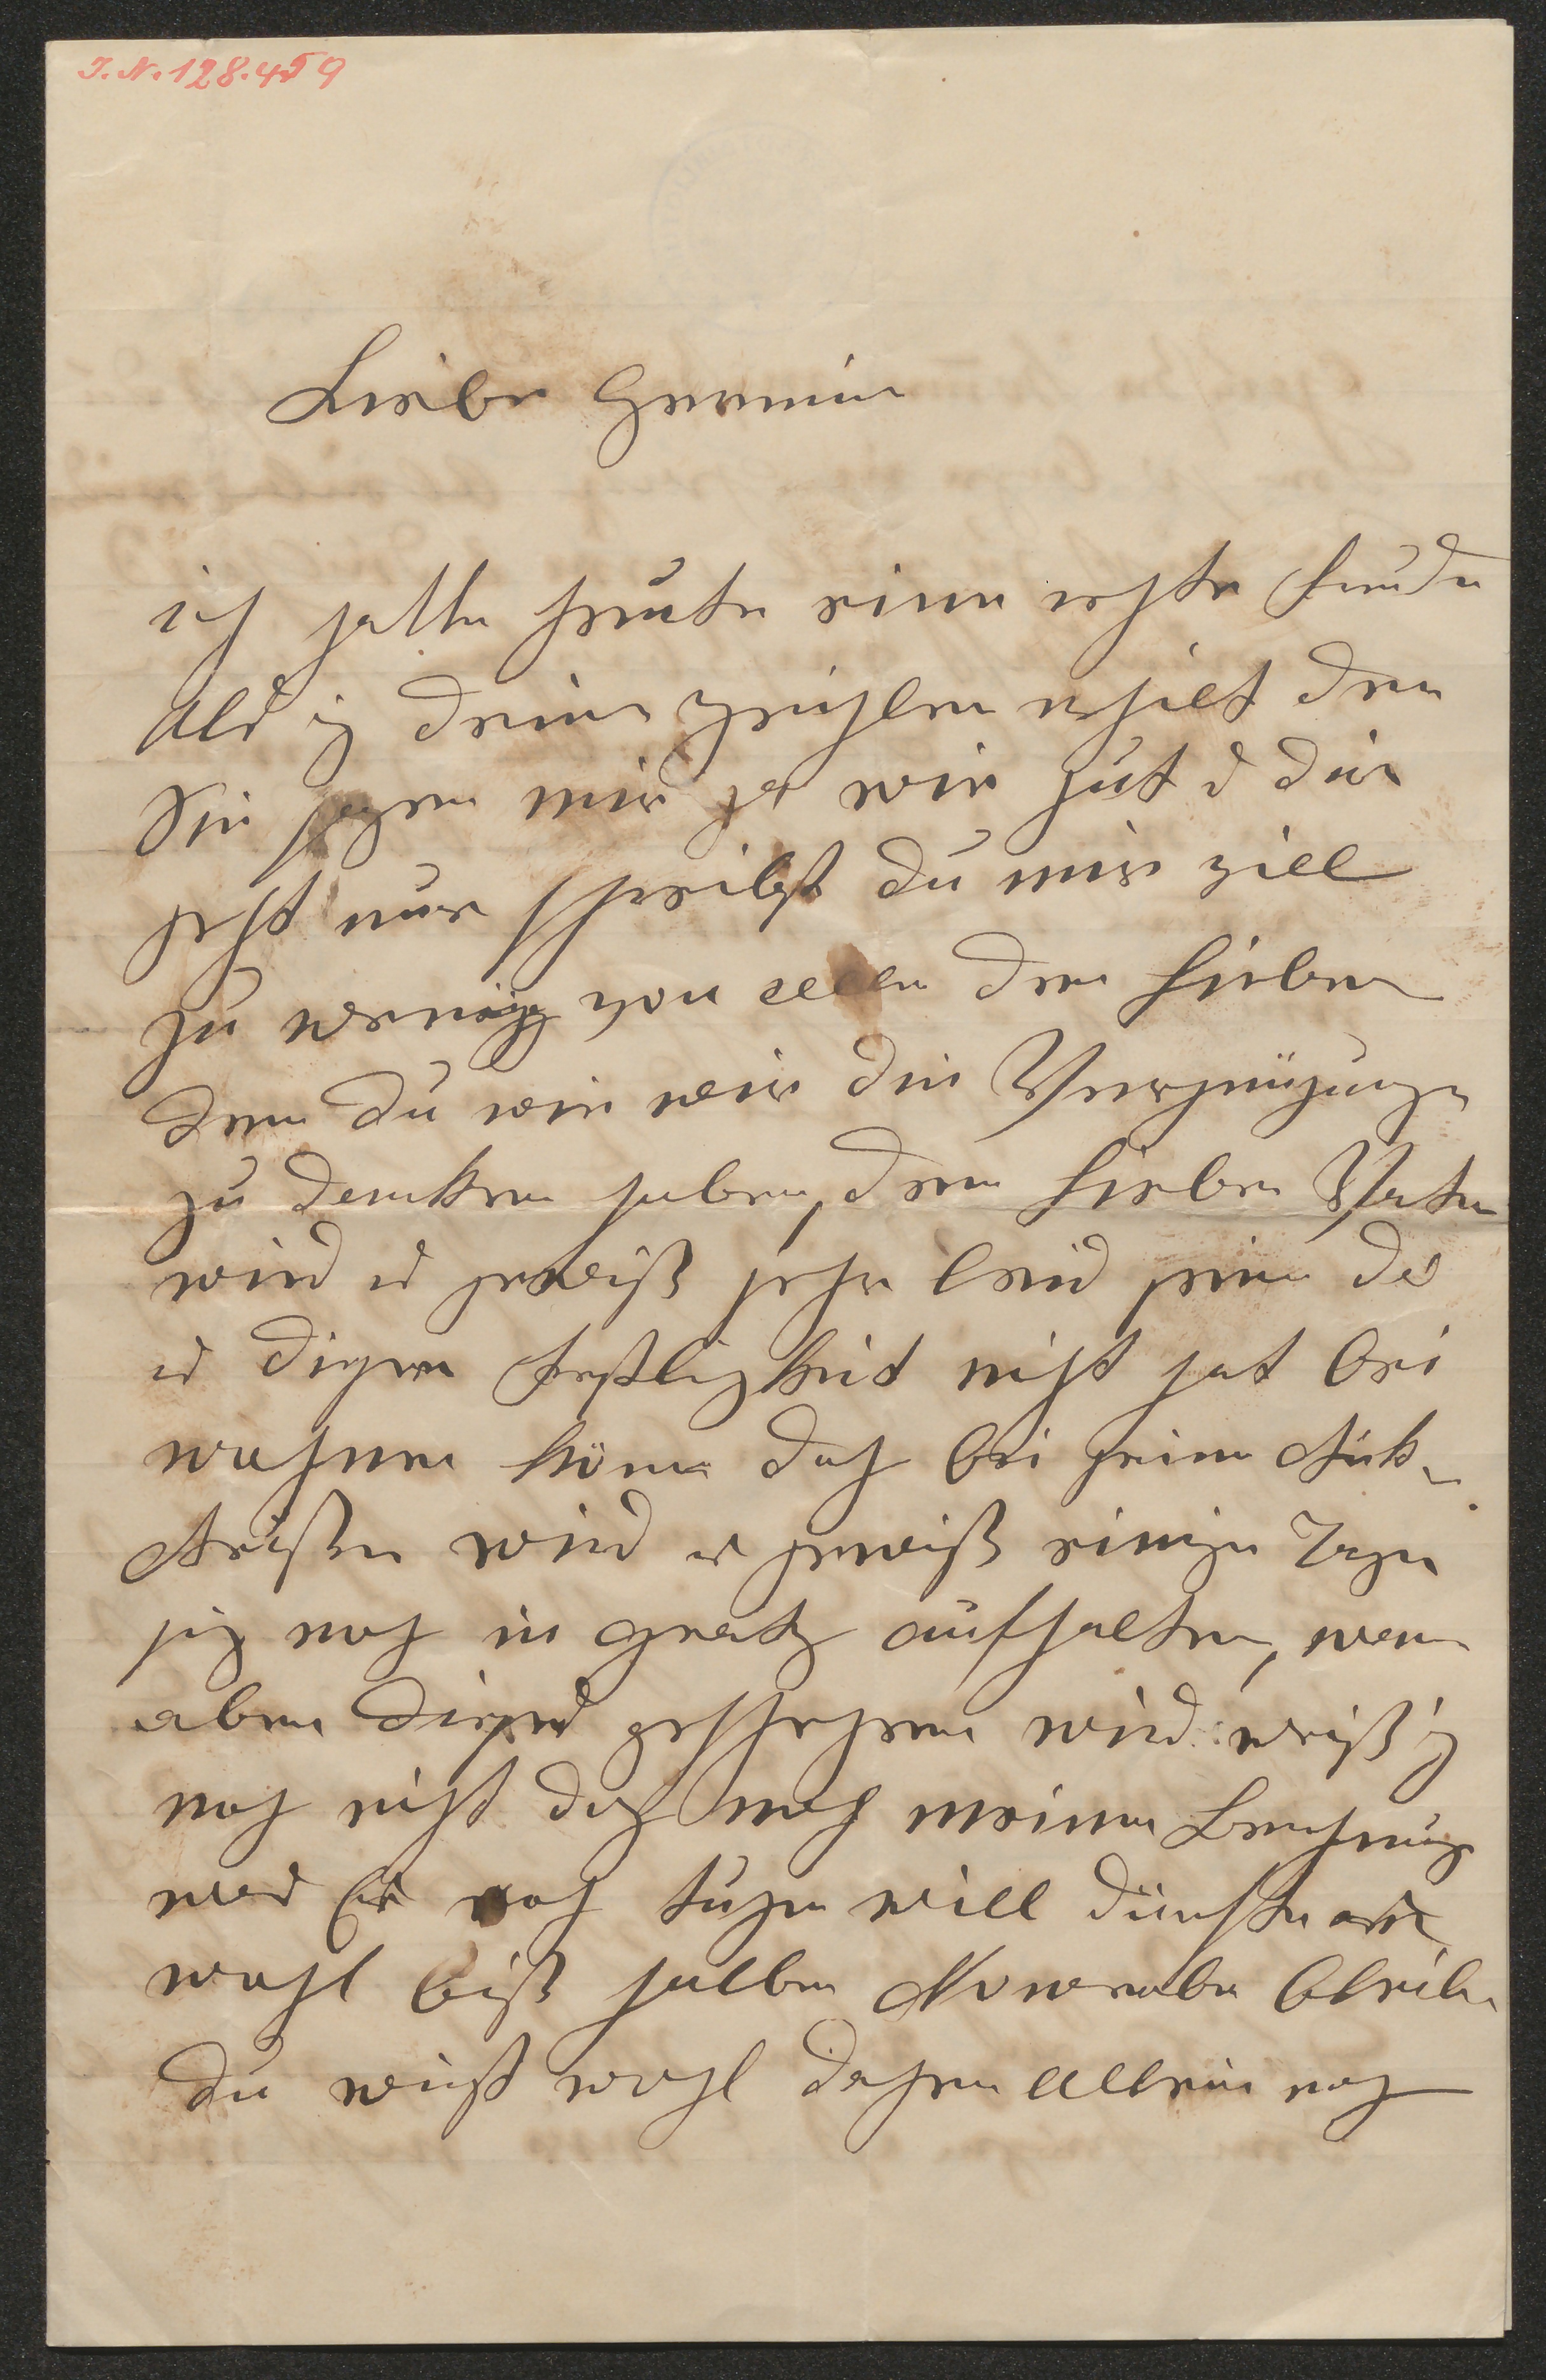 J.N. 128.459
Liebe Hermine
ich hatte heute eine rechte Freude
Als ich deine Zeichlen erhielt den
Sie sagen mir ja wie gut es dir
geht nur schreibst du mir viell
zu wenig von allen den Lieben
den du wie wir die Vergnügungen
zu dencken haben, den Lieben Vater
wird es gewiß sehr leid sein das
er diesen Festlichkeit nicht hat bei
wohnen könen doch bei seine Rük-
Reißen wird er gewiß einige Tage
sich noch in Gratz aufhalten, wen
aben dieses geschehen wird weiß ich
noch nicht doch nach meinen Berechnung
was Er noch tuhen will dürfte
wohl biß halben November bleiben
du weißt wohl dahen allein noch